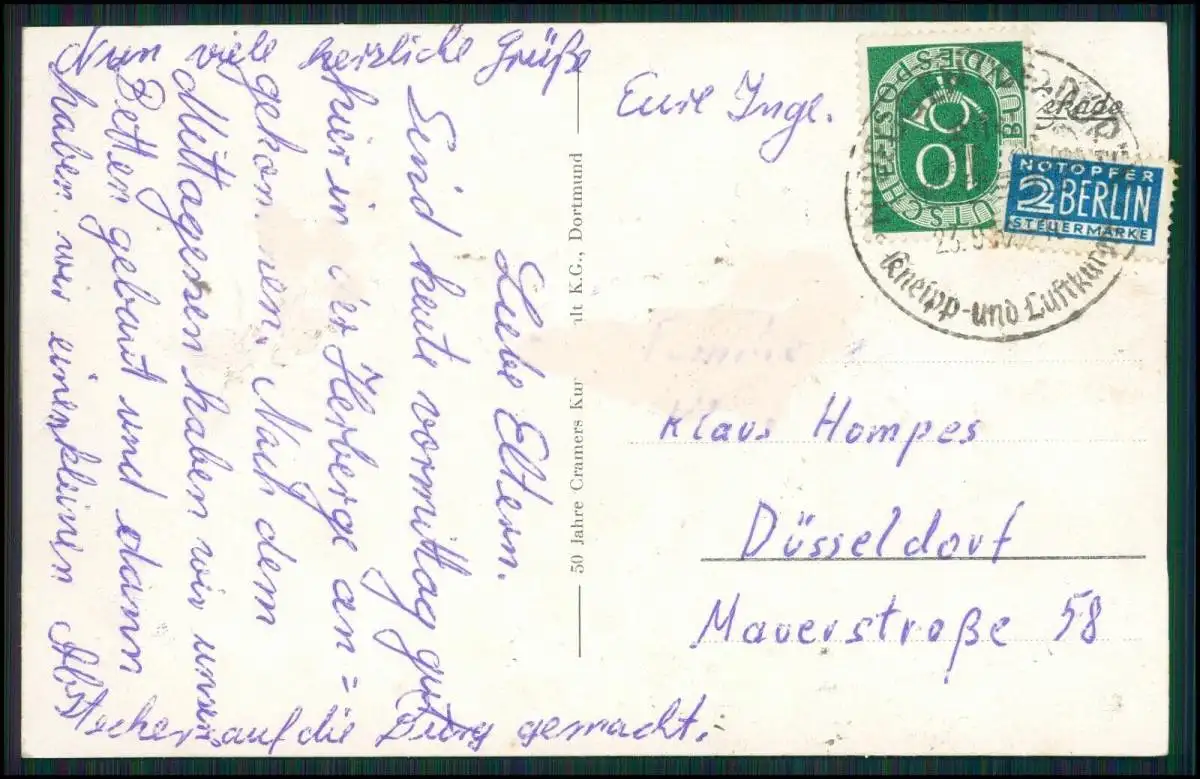 Liebe Eltern.
Sind heute vormittag gut
hier in der Herberge an=
gekommen. Nach dem
Mittagessen haben wir unsere
Betten gebaut und dann
haben wir einen kleinen Ab
stecher auf die Burg gemacht.
Nun viele herzliche Grüße
Eure Inge.
50 Jahre Cramers Kun alt K.G., Dortmund
DEUTSCHE BUNDESPOST
10
10
NOTOPFER
2 BERLIN
STEUERMARKE
23.9.
Kneipp- und Luftkur
Familie
Klaus Hompes
Düsseldorf
Mauerstraße 58